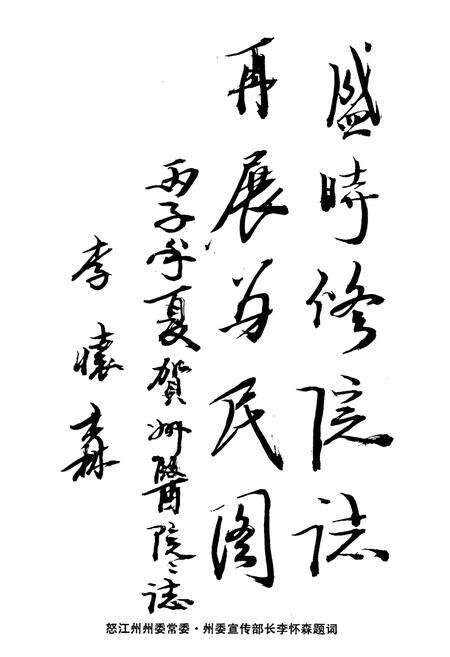 盛時修院誌
再展为民图
丙子年夏賀州醫院々誌
李懷森
怒江州州委常委·州委宣传部长李怀森题词